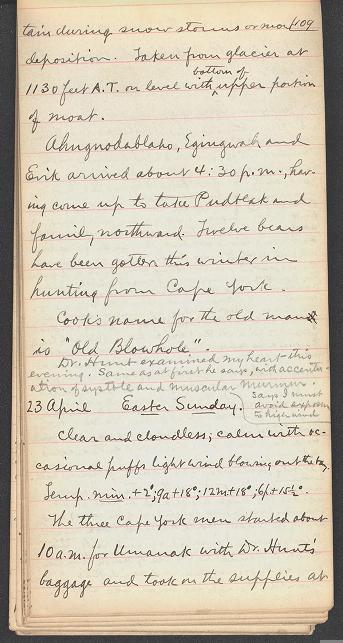 109
tain during snow storms or mor
deposition. Taken from glacier at
bottom of
1130 feet A.T. on level with upper portion
of moat.
Ahngnodablaho, Egingwah and
Erik arrived about 4:30 p.m., hav-
ing come up to take Pudblak and
family northward. Twelve bears
have been gotten this winter in
hunting from Cape York.
Cook's name for the old man
is "Old Blowhole"
Dr. Hunt examined my heart this
evening. Same as at first he says, with accentu-
ation of systole and muscular murmur.
Says I must
avoid exposure
to high wind
23 April Easter Sunday.
Clear and cloudless; calm with oc-
casional puffs light wind blowing out the bay.
Temp. min. +2°; 9a +18°; 12m +18°; 6p +15½°.
The three Cape York men started about
10 a.m. for Umanak with Dr. Hunt's
baggage and took on the supplies at